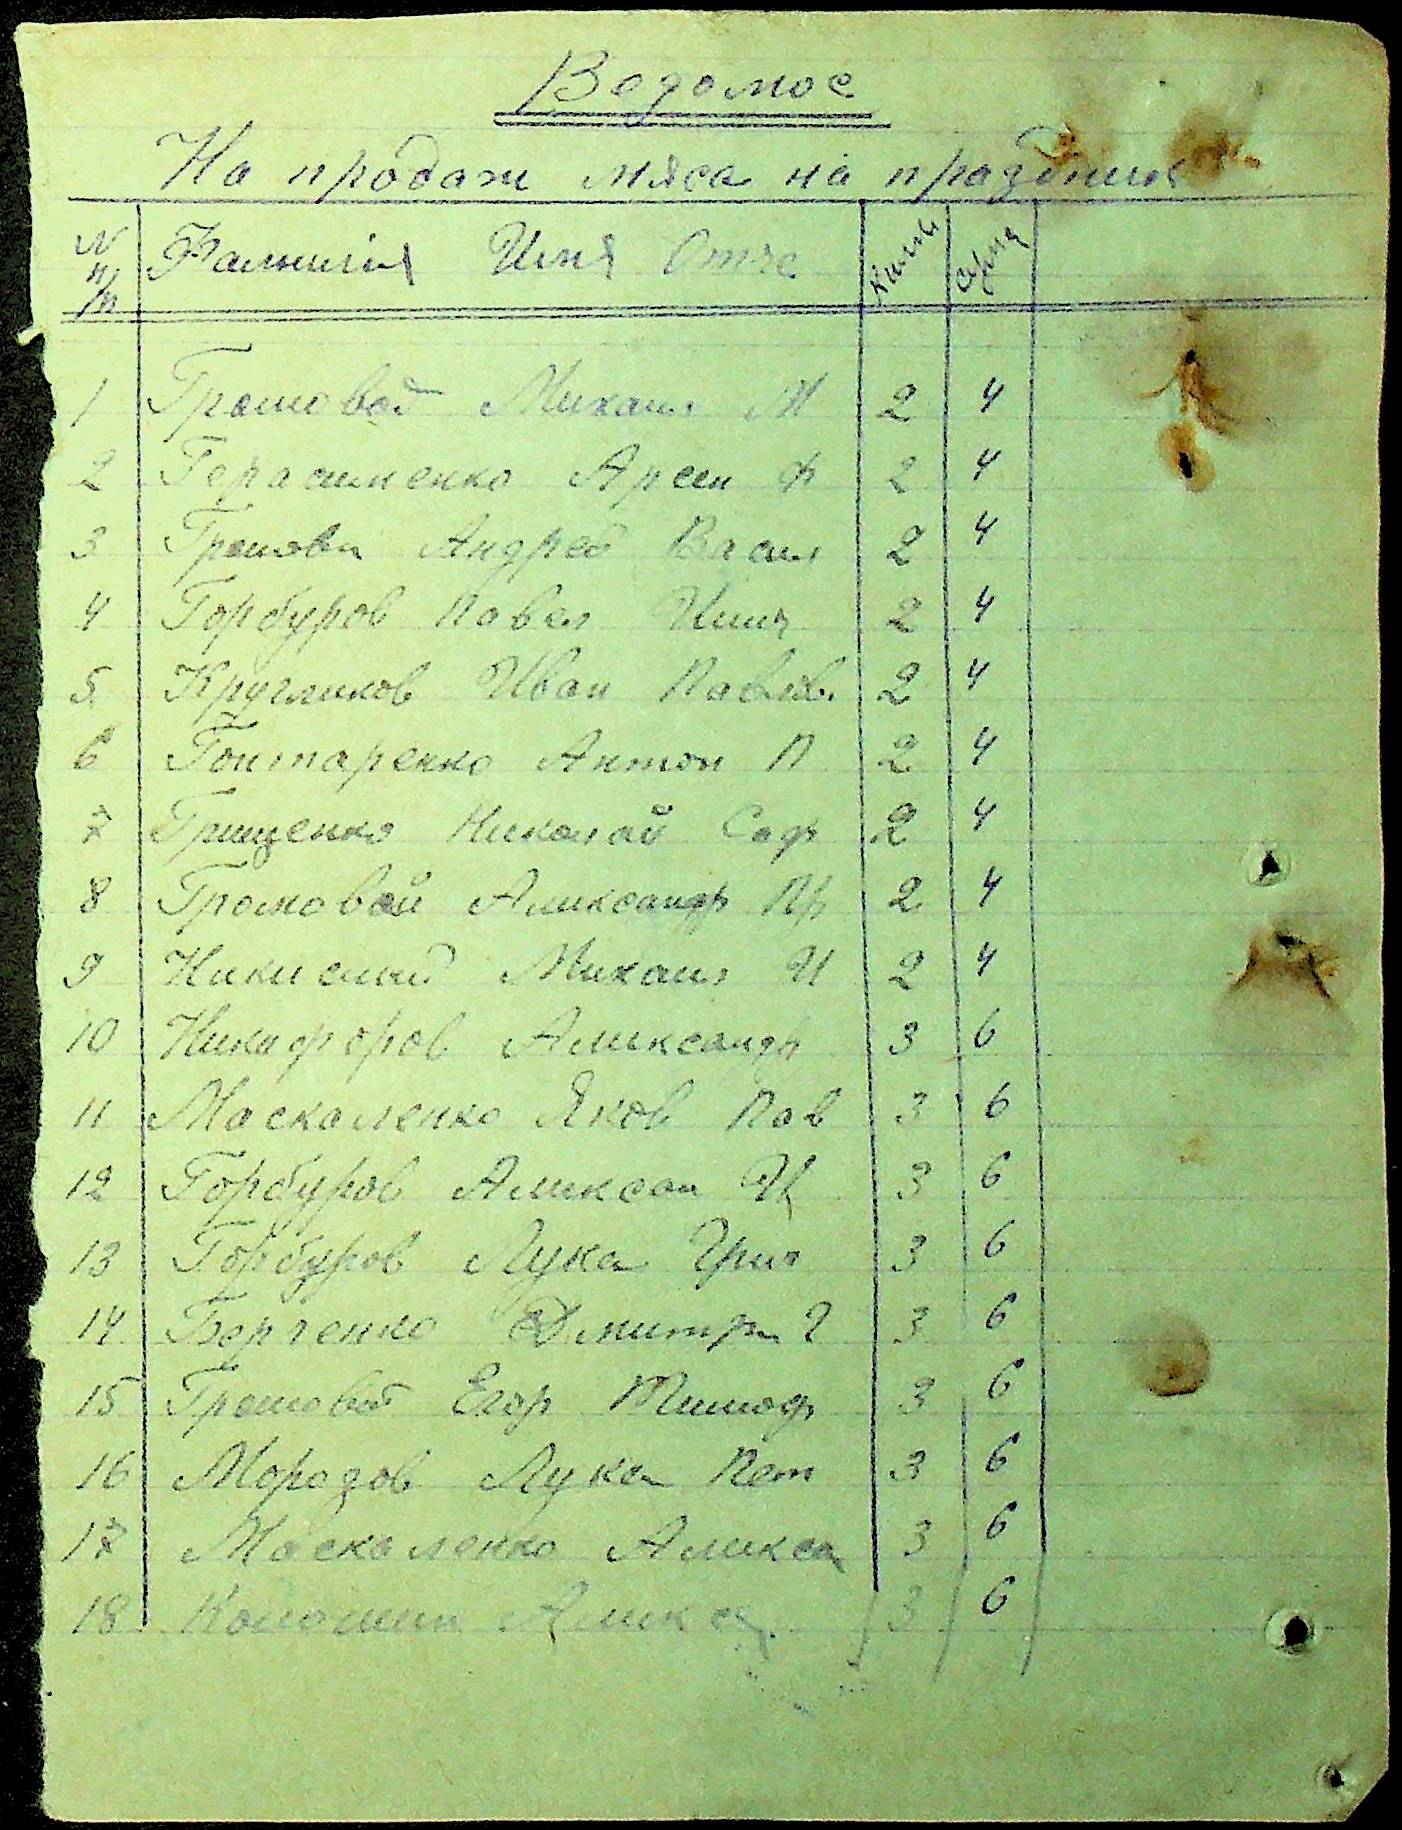 Ведомос
На продаж мяса на праздник
N п/п Фамилия Имя Отче Килгр сума
1 Громовой Михаил М 2 4
2 Герасименко Арсен Ф 2 4
3 Андрей Васил 2 4
4 Горбуров Павел 2 4
5 Кругликов Иван Павлов 2 4
6 Гонтаренко Антон П 2 4
7 Грищенко Николай Соф 2 4
8 Громовой Аликсандр Пр 2 4
9 Михаил И 2 4
10 Никифоров Аликсандр 3 6
11 Маскаленко Яков Пав 3 6
12 Горбуров Аликсан И 3 6
13 Горбуров Лука Григ 3 6
14 Дмитри Г 3 6
15 Громовой Егор Тимоф 3 6
16 Морозов Лука Пет 3 6
17 Маскаленко Аликсан 3 6
18 3 6